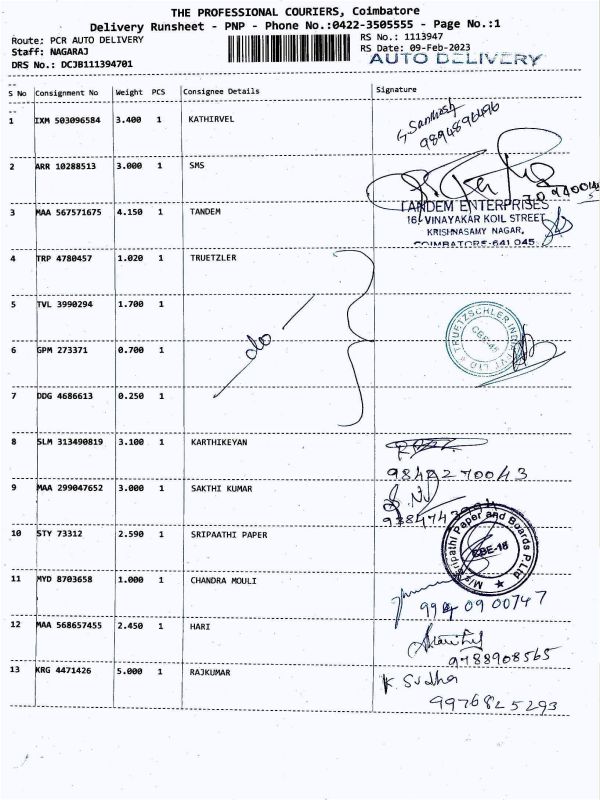 THE PROFESSIONAL COURIERS, Coimbatore
Delivery Runsheet - PNP - Phone No.:0422-3505555 - Page No.:1
Route: PCR AUTO DELIVERY
Staff: NAGARAJ
DRS No.: DCJB111394701
RS No.: 1113947
RS Date: 09-Feb-2023
AUTO DELIVERY
S No Consignment No Weight PCS Consignee Details Signature
1 IXM 503096584 3.400 1 KATHIRVEL
G Santhosh
9894896496
2 ARR 10288513 3.000 1 SMS
3 MAA 567571675 4.150 1 TANDEM
TANDEM ENTERPRISES
16, VINAYAKAR KOIL STREET
KRISHNASAMY NAGAR,
COIMBATORE-641 045
4 TRP 4780457 1.020 1 TRUETZLER
5 TVL 3990294 1.700 1
do
6 GPM 273371 0.700 1
TRUETZSCHLER INDIA PVT LTD
CBE-45
7 DDG 4686613 0.250 1
8 SLM 313490819 3.100 1 KARTHIKEYAN
9842270043
9 MAA 299047652 3.000 1 SAKTHI KUMAR
10 STY 73312 2.590 1 SRIPAATHI PAPER
M/s Sripathi Paper and Boards P.Ltd
CBE-18
11 MYD 8703658 1.000 1 CHANDRA MOULI
12 MAA 568657455 2.450 1 HARI
9788908565
13 KRG 4471426 5.000 1 RAJKUMAR
K Sudha
9976825293